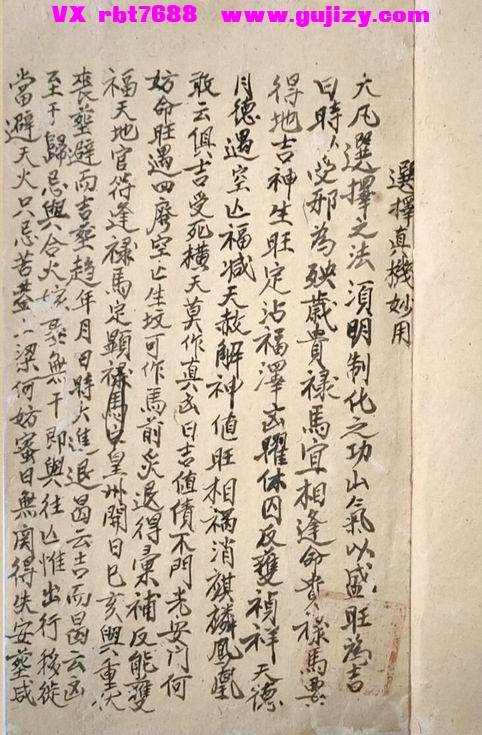 VX rbt7688 www.gujizy.com
選擇真機妙用
大凡選擇之法須明制化之功山氣以盛旺為吉
日時受邪為殃歲貴祿馬宜相逢命貴祿馬要
得地吉神生旺定沾福澤凶曜休囚反獲禎祥天德
月德遇空亡福减天赦解神值旺相禍消麒麟鳳凰
敢云俱吉受死橫天莫作真凶日吉值債不門光安门何
妨命旺遇四廢空亡生坟可作馬前炎退得稟補反能獲
福天地官符逢祿馬定顯祿馬空皇州開日巳亥與重伏
喪塟避而吉塟趋年月日時大進退曷云吉而曷云凶
至于歸忌與合火坟墓無干即與往亡惟出行移徙
當避天火只忌苫蓋上梁何妨蜜日無関得失安塟咸